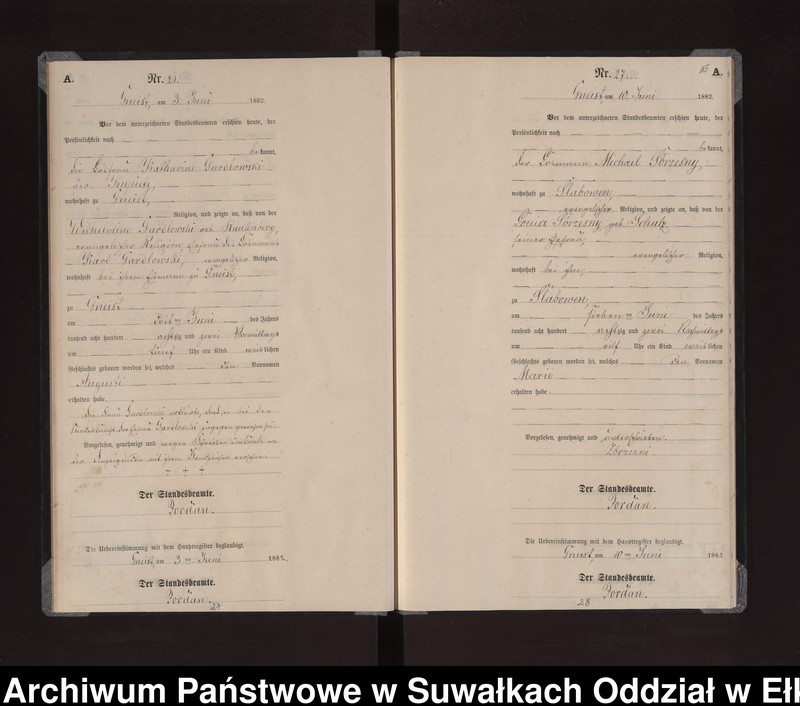 A.
Nr. 26.
Gneist, am 3. Juni 1882.
Vor dem unterzeichneten Standesbeamten erschien heute, der
Persönlichkeit nach
bekannt,
die Losfrau Katharine Gavelowski
geb.
wohnhaft zu Gneist,
Religion, und zeigte an, daß von der
Wilhelmine Gavelowski geb.
evangelischer Religion, Ehefrau des Losmann
Karl Gavelowski, evangelischer Religion,
wohnhaft bei ihrem Ehemann zu Gneist,
zu Gneist
am drei ten Juni des Jahres
tausend acht hundert achtzig und zwei Vormittags
um fünf Uhr ein Kind weiblichen
Geschlechts geboren worden sei, welches den Vornamen
Auguste
erhalten habe.
Die Frau Gavelowski erklärte, daß sie bei der
Niederkunft der Ehefrau Gavelowski zugegen gewesen sei.
Vorgelesen, genehmigt und wegen Schreibensunkunde von
der Anzeigenden mit ihrem Handzeichen versehen.
+ + +
Der Standesbeamte.
Jordan.
Die Uebereinstimmung mit dem Hauptregister beglaubigt.
Gneist, am 3 ten Juni 1882.
Der Standesbeamte.
Jordan.
27
A.
Nr. 27.
Gneist, am 10. Juni 1882.
Vor dem unterzeichneten Standesbeamten erschien heute, der
Persönlichkeit nach
bekannt,
der Losmann, Michael
wohnhaft zu Slabowen,
evangelischer Religion, und zeigte an, daß von der
Louise geb. Schulz,
seiner Ehefrau,
evangelischer Religion,
wohnhaft bei ihm,
zu Slabowen,
am sieben ten Juni des Jahres
tausend acht hundert achtzig und zwei Nachmittags
um elf Uhr ein Kind weiblichen
Geschlechts geboren worden sei, welches den Vornamen
Marie
erhalten habe.
Vorgelesen, genehmigt und unterschrieben.
Der Standesbeamte.
Jordan.
Die Uebereinstimmung mit dem Hauptregister beglaubigt.
Gneist, am 10 ten Juni 1882
Der Standesbeamte.
Jordan.
28
Archiwum Państwowe w Suwałkach Oddział w Ełk